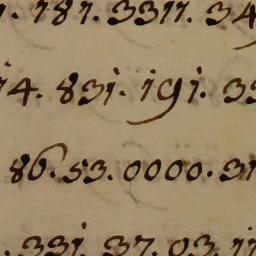 . 181. 3311. 34
14. 831. 191. 33
86. 53. 0000. 31
. 331. 37. 03. 11